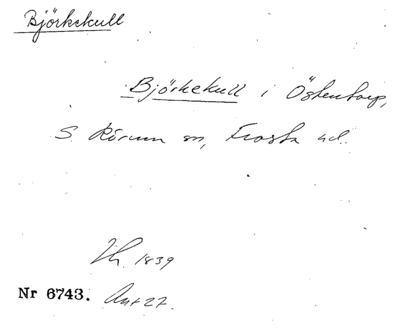 Björkekull
Björkekull i Östentorp,
S. Rörum sn, Frosta hd.
1839
Nr 6743. Ant 27.